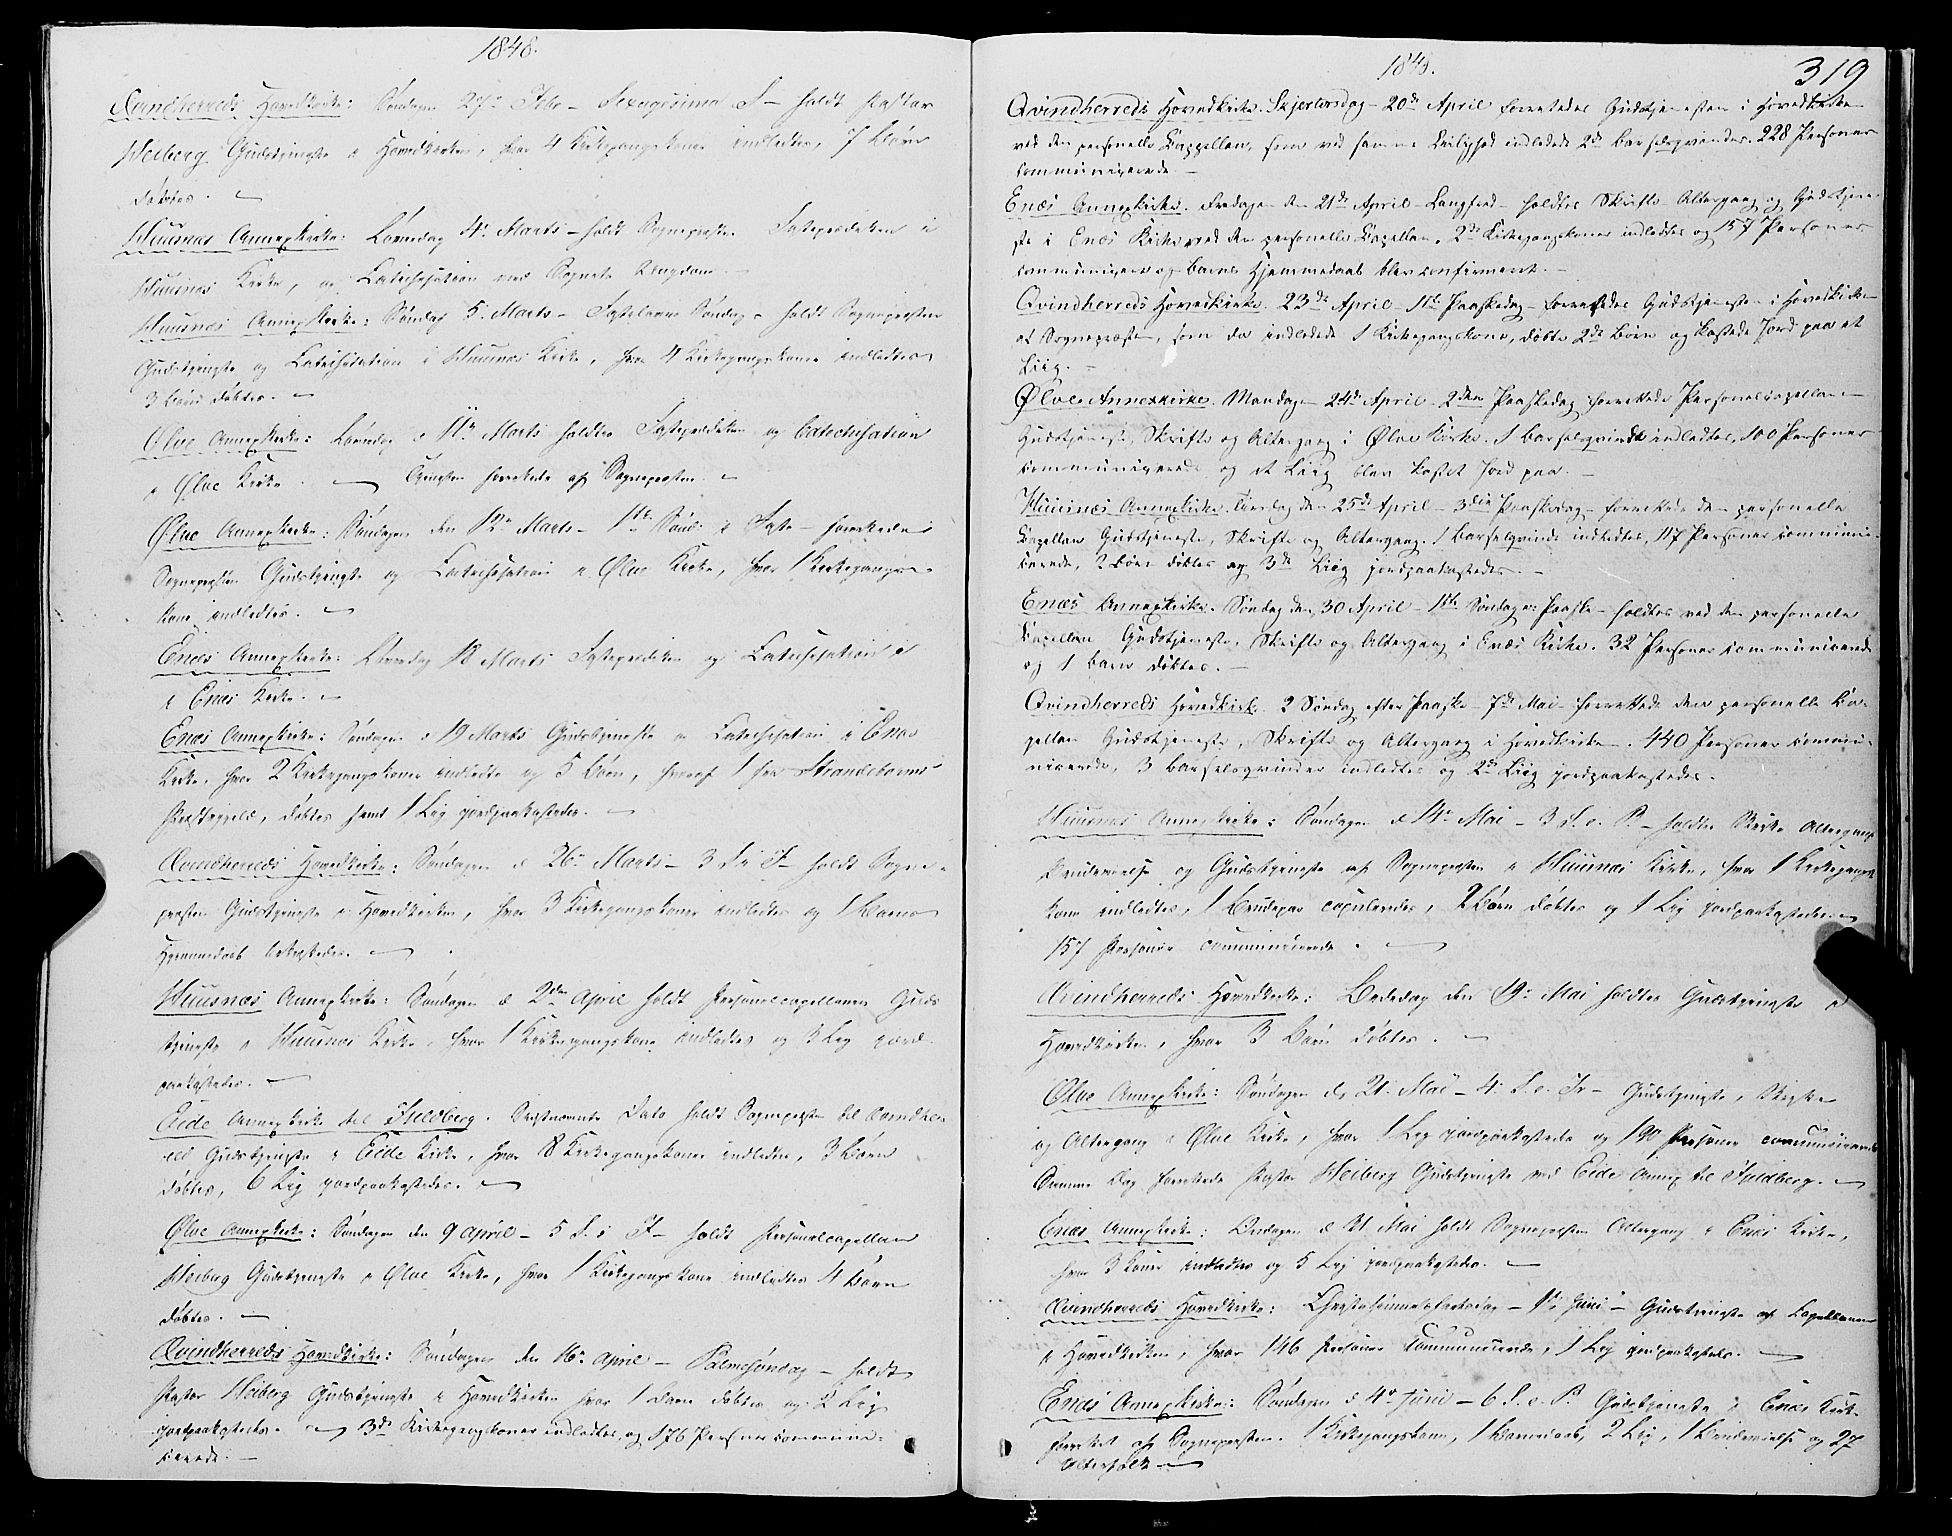 1848.
Qvindherreds Hovedkirke: Søndagen 27. Febr. – Sexagesima S – holdt Pastor
Heiberg Gudstjeneste i Hovedkirken, hvor 4 Kirkegangskoner indledtes, 7 Børn
døbtes. –
Huusnæs Annexkirke: Løverdag 4. Marts – holdt Sognepresten Fasteprædiken i
Huusnæs Kirke, og Catechisation med Sognets Ungdom. –
Huusnæs Annexkirke: Søndag 5. Marts – Fastelavns Søndag – holdt Sognepresten
Gudstjeneste og Catechisation i Huusnæs Kirke, hvor 4 Kirkegangskoner indledtes
3 Børn døbtes. –
Ølve Annexkirke: Løverdag d 11. Marts holdtes Fasteprædiken og Catechisation
i Ølve Kirke. – Tjenesten forrettede af Sognepresten. –
Ølve Annexkirke: Søndagen den 12. Marts – 1ste Sønd. i Faste – forrettede
Sognepresten Gudstjeneste og Catechisation i Ølve Kirke, hvor 1 Kirkegangs-
kone indledtes. –
Enæs Annexkirke: Løverdag 18 Marts Fasteprædiken og Catechisation i
i Enæs Kirke. –
Enæs Annexkirke: Søndagen d 19 Marts Gudstjeneste og Catechisation i Enæs
Kirke, hvor 2 Kirkegangskoner indledtes og 5 Børn, hvoraf 1 fra Strandebarms
Præstegjeld, døbtes samt 1 Lig jordpaakastedes. –
Qvindherreds Hovedkirke: Søndagen d 26. Marts – 3 S i F – holdt Sogne-
presten Gudstjeneste i Hovedkirken, hvor 3 Kirkegangskoner indledtes og 1 Barns
Hjemmedaab bekræftedes. –
Huusnæs Annexkirke: Søndagen d 2den April holdt Personelcapellanen Guds
tjeneste i Huusnæs Kirke, hvor 1 Kirkegangskone indledtes og 3 Lig jord-
paakastedes. –
Eide Annexkirke til Fjeldberg. Sidstnævnte Dato holdt Sognepresten til Qvindher
red Gudstjeneste i Eide Kirke, hvor 8 Kirkegangskoner indledtes, 3 Børn
døbtes, 6 Lig jordpaakastedes. –
Ølve Annexkirke: Søndagen den 9 April – 5 S. i F – holdt Personelcapellan
Heiberg Gudstjeneste i Ølve Kirke, hvor 1 Kirkegangskone indledtes 4 Børn
døbtes. –
Qvindherreds Hovedkirke: Søndagen den 16. April – Palmesøndag – holdt
Pastor Heiberg Gudstjeneste i Hovedkirken hvor 1 Barn døbtes og 2 Lig
jordpaakastedes. – 3de Kirkegangskoner indledtes, og 176 Personer communi-
cerede. –
1848.
319
Qvindherreds Hovedkirke. Skjertorsdag – 20de April forrettedes Gudstjenesten i Hovedkirken
ved den personelle Cappellan, som ved samme Leilighed indledede 2de Barselqvinder. 228 Personer
communicerede. –
Enæs Annexkirke. Fredagen den 21de April – Langfred – holdtes Skrifte Altergang og Gudstjene-
ste i Enæs Kirke ved den personelle Capellan. 2de Kirkegangskoner indledtes og 157 Personer
communicerede og Barns Hjemmedaab blev confirmeret. –
Qvindherreds Hovedkirke. 23de April – 1ste Paaskedag – forrettedes Gudstjenesten i Hovedkirken
af Sognepræsten, som da indledede 1 Kirkegangskone, døbte 2de Børn og kastede Jord paa et
Liig. –
Ølve Annexkirke. Mandagen 24de April – 2den Paaskedag forrettede Personelcapellanen
Gudstjeneste, Skrifte og Altergang i Ølve Kirke. 1 Barselqvinde indledtes, 100 Personer
communicerede og et Liig blev kastet Jord paa. –
Huusnæs Annexkirke. Tirsdag den 25de April – 3die Paaskedag – forrettede den personelle
Capellan Gudstjeneste, Skrifte og Altergang. 1 Barselqvinde indledtes, 117 Personer communi-
cerede, 2 Børn døbtes og 3de Liig jordpaakastedes. –
Enæs Annexkirke. Søndag den 30 April – 1ste Søndag e: Paaske – holdtes ved den personelle
Capellan Gudstjeneste, Skrifte og Altergang i Enæs Kirke. 32 Personer communicerede
og 1 Barn døbtes. –
Qvindherreds Hovedkirke. 2 Søndag efter Paaske – 7de Mai – forrettede den personelle Ca-
pellan Gudstjeneste, Skrifte og Altergang i Hovedkirken. 440 Personer commu-
nicerede, 3 Barselqvinder indledtes og 2de Liig jordpaakastedes.
Huusnæs Annexkirke: Søndagen d 14. Mai – 3 S. e. P – holdtes Skrifte Altergang
Brudevielse og Gudstjeneste af Sognepresten i Huusnæs Kirke, hvor 1 Kirkegangs
kone indledtes, 1 Brudepar copuleredes, 2 Børn døbtes og 1 Lig jordpaakastedes –
157 Personer communicerede. –
Qvindherreds Hovedkirke: Bededag den 19. Mai holdtes Gudstjeneste i
Hovedkirken, hvor 3 Børn døbtes. –
Ølve Annexkirke: Søndagen d. 21. Mai – 4. S. e. Gudstjeneste, Skrifte
og Altergang i Ølve Kirke, hvor 1 Lig jordpaakastedes og 190 Personer communicerede
Samme Dag forrettede Pastor Heiberg Gudstjeneste ved Eide Annex til Fjeldberg. –
Enæs Annexkirke: Onsdagen d 31 Mai holdt Sognepresten Altergang i Enæs Kirke,
hvor 3 Koner indledtes og 5 Lig jordpaakastedes. –
Qvindherreds Hovedkirke: Christihimmelfartsdag – 1. Juni – Gudstjeneste af Capellanen
i Hovedkirken, hvor 146 Personer communicerede, 1 Lig jordpaakastedes. –
Enæs Annexkirke: Søndagen d 4de Juni – 6 S. e. P. Gudstjeneste i Enæs Kirke
forrettet af Sognepresten. 1 Kirkegangskone, 1 Barnedaab, 2 Lig, 1 Brudevielse og 27
Altersfolk –